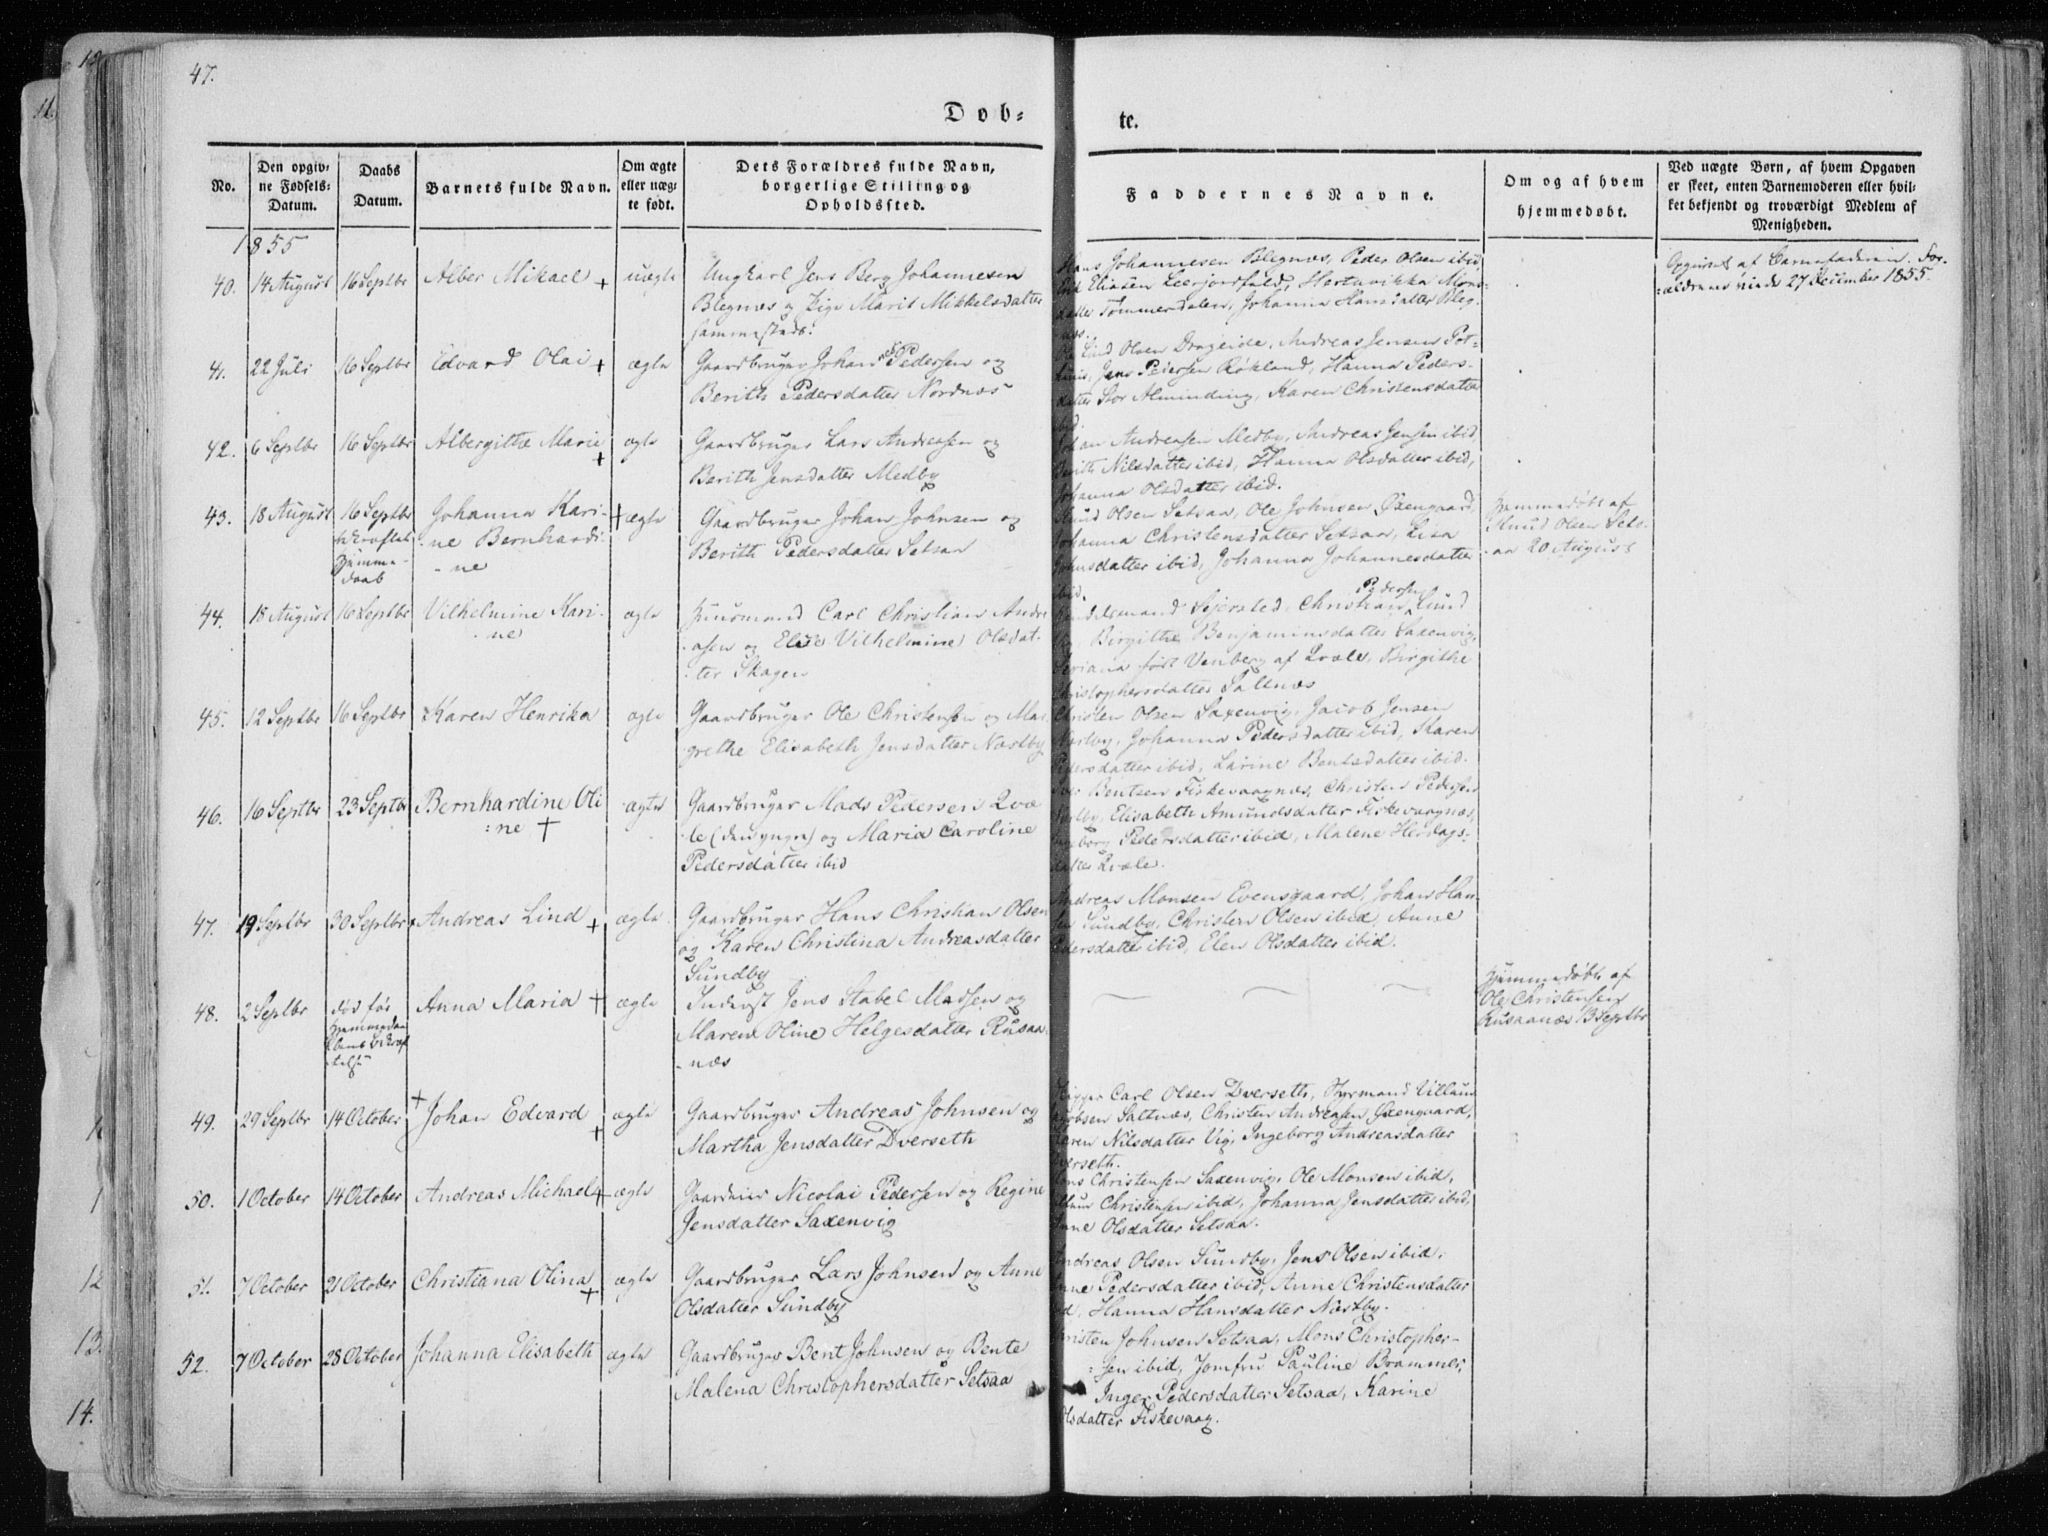 47.
Døb-
te.
No.
Den opgivne Fødsels-Datum.
Daabs Datum.
Barnets fulde Navn.
Om ægte eller uægte født.
Dets Forældres fulde Navn, borgerlige Stilling og Opholdssted.
Faddernes Navne.
Om og af hvem hjemmedøbt.
Ved uægte Børn, af hvem Opgaven er skeet, enten Barnemoderen eller hvilket bekjendt og troværdigt Medlem af Menigheden.
1855
40. 14 August 16 Septbr Alber Mikael + uægte
Ungkarl Jens Berg Johannesen
Blegnæs og Pige Marit Mikkelsdatter
sammesteds.
Hans Johannesen Blegnæs, Peder Olsen ibid
Eliasen Leerjordfald, Hertuvikka Mons-
datter Tømmerdalen, Johanna Hansdatter Bleg-
næs.
Opgivet af Barnefaderen. For-
ældrene viede 27 December 1855.
41. 22 Juli 16 Septbr Edvard Olai + ægte
Gaardbruger Johan Pedersen og
Berith Pedersdatter Nordnæs
Lind Olsen Drageide, Andreas Jensen
Jens Peiersen Røkland, Hanna Peders-
datter Stor Alminding, Karen Christensdatter
ibid.
42. 6 Septbr 16 Septbr Albergitha Marie + ægte
Gaardbruger Lars Andreasen og
Berith Jensdatter Medby
Johan Andreasen Medby, Andreas Jensen ibid,
Berith Nilsdatter ibid, Hanna Olsdatter ibid,
Johanna Olsdatter ibid.
43. 18 August 16 Septbr Johanna Kari- + ægte
bekræftet
Hjemme-
daab
-ne Bernhardi-
-ne
Gaardbruger Johan Johnsen og
Berith Pedersdatter Setsaa
Knud Olsen Setsaa, Ole Johnsen Øxengaard,
Johanna Christensdatter Setsaa, Lisa
Johnsdatter ibid, Johanna Johannesdatter
ibid.
Hjemmedøbt af
Knud Olsen Sets-
-aa 20 August
44. 15 August 16 Septbr Vilhelmine Kari- ægte
-ne
Huusmand Carl Christian Andre
-asen og Elise Vilhelmine Olsdat-
-ter Skagen
Pedersen
Handelsmand Sejersted, Christian Lund
Birgithe Benjaminsdatter Saxenvig,
født Venberg af Qvæle, Birgithe
Christophersdatter Saltnæs
45. 12 Septbr 16 Septbr Karen Henrika ægte
Gaardbruger Ole Christensen og Mar-
grethe Elisabeth Jensdatter Næstby
Christen Olsen Saxenvig, Jacob Jensen
Næstby, Johanna Pedersdatter ibid, Karen
Pedersdatter ibid, Larine Bentsdatter ibid.
46. 16 Septbr 23 Septbr Bernhardine Oli ægte
:ne +
Gaardbruger Mads Pedersen Qvæ
-le (den yngre) og Maria Caroline
Pedersdatter ibid
Bentsen Fiskevaagnæs, Christen Pedersen
Elisabeth Amundsdatter Fiskevaagnæs,
Ingeborg Pedersdatter ibid, Malene Herdags-
datter Qvæle.
47. 19 Septbr 30 Septbr Andreas Lind + ægte
Gaardbruger Hans Christian Olsen
og Karen Christina Andreasdatter
Sundby
Andreas Monsen Evensgaard, Johan Han-
sen Sundby, Christen Olsen ibid, Anne
Pedersdatter ibid, Elen Olsdatter ibid.
48. 2 Septbr død før Anna Maria + ægte
Hjemmedaa
bens bekræf
telse
Inderst Jens Stabel Madsen og
Maren Oline Helgesdatter Rusaa-
-næs
Hjemmedøbt af
Ole Christensen
Rusaanæs 3 Septbr
49. 29 Septbr 14 October + Johan Edvard + ægte
Gaardbruger Andreas Johnsen og
Martha Jensdatter Dverseth
Carl Olsen Dverseth, Styrmand Villum
Jacobsen Saltnæs, Christen Andreasen Øxengaard,
Karen Nilsdatter Vig, Ingeborg Andreasdatter
Dverseth.
50. 1 October 14 October Andreas Michael + ægte
Gaardeier Nicolai Pedersen og Regine
Jensdatter Saxenvig
Mons Christensen Saxenvig, Ole Monsen ibid,
Villum Christensen ibid, Johanna Jensdatter ibid,
Anne Olsdatter Setsaa.
51. 7 October 21 October Christiana Olina + ægte
Gaardbruger Lars Johnsen og Anne
Olsdatter Sundby
Andreas Olsen Sundby, Jens Olsen ibid,
Anne Pedersdatter ibid, Anne Christensdatter
ibid, Hanna Hansdatter Næstby.
52. 7 October 28 October Johanna Elisabeth ægte
Gaardbruger Bent Johnsen og Bente
Malena Christophersdatter Setsaa
Christen Johnsen Setsaa, Mons Christopher-
:sen ibid, Jomfru Pauline Brammer,
Inger Pedersdatter Setsaa, Karine
Olsdatter Fiskevaag.
12
13.
14.